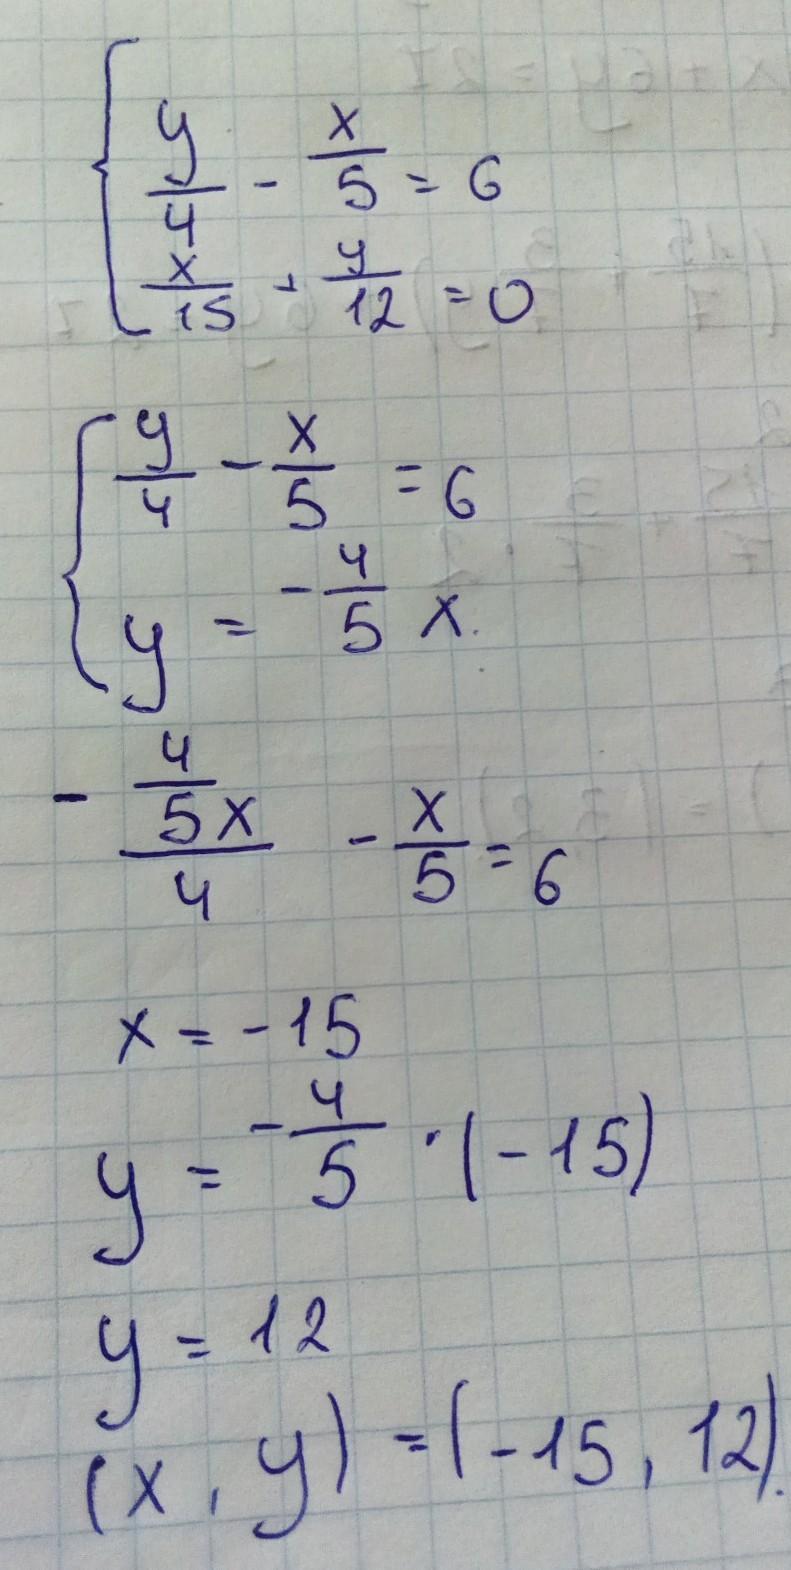 y/4 - x/5 = 6
x/15 + y/12 = 0
y/4 - x/5 = 6
y = -4/5 x.
- (4/5 x)/4 - x/5 = 6
x = -15
y = -4/5 · (-15)
y = 12
(x, y) = (-15, 12).